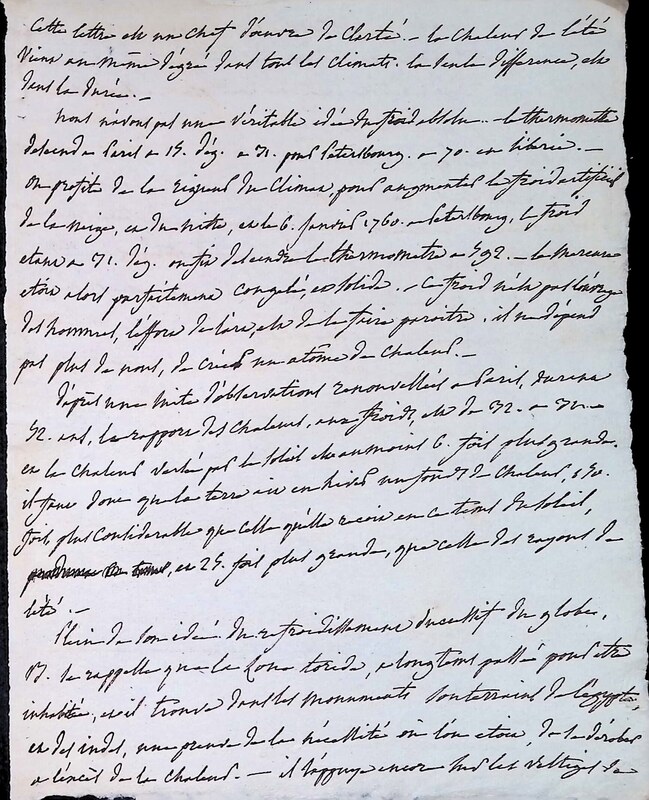 Cette lettre est un chef d'œuvre de clarté. - la chaleur de l'été
vient au même dégré dans tous les climats. la seule différence, est
dans la durée. -
nous n'avons pas une véritable idée du froid absolu.. - le thermometre
descend a Paris a 15. dég. a 31. pour Petersbourg. a 70. en Siberie. -
on profite de la rigueur du climat, pour augmenter le froid artificiel
de la neige, et du nitre, et le 6. janvier 1760. a Petersbourg, le froid
etant a 31. dég. on fit descendre le thermometre a 592. - le mercure
etoit alors parfaitement congelé, et solide. - ce froid n'est pas l'ouvrage
des hommes, l'effort de l'art, est de le faire paroitre. il ne dépend
pas plus de nous, de créer un atôme de chaleur. -
d'après une suite d'observations renouvellées a Paris, durant
52. ans, le rapport des chaleurs, aux froids, est de 32. a 31. -
et la chaleur versée par le soleil est au moins 6. fois plus grande.
il faut donc que la terre ait en hiver un fonds de chaleur,
fois plus considerable que celle qu'elle reçoit en ce tems du soleil,
et 25. fois plus grande, que celle des rayons de
l'été. -
Plein de son idée du refroidissement successif du globe,
B. se rappelle que la Zone toride, a longtems passé pour être
inhabitée, et il trouve dans les monuments souterrains de l'egypte,
et des indes, une preuve de la nécessité où l'on etoit, de se dérober
a l'excès de la chaleur. - il s'appuye encore sur les vestiges de